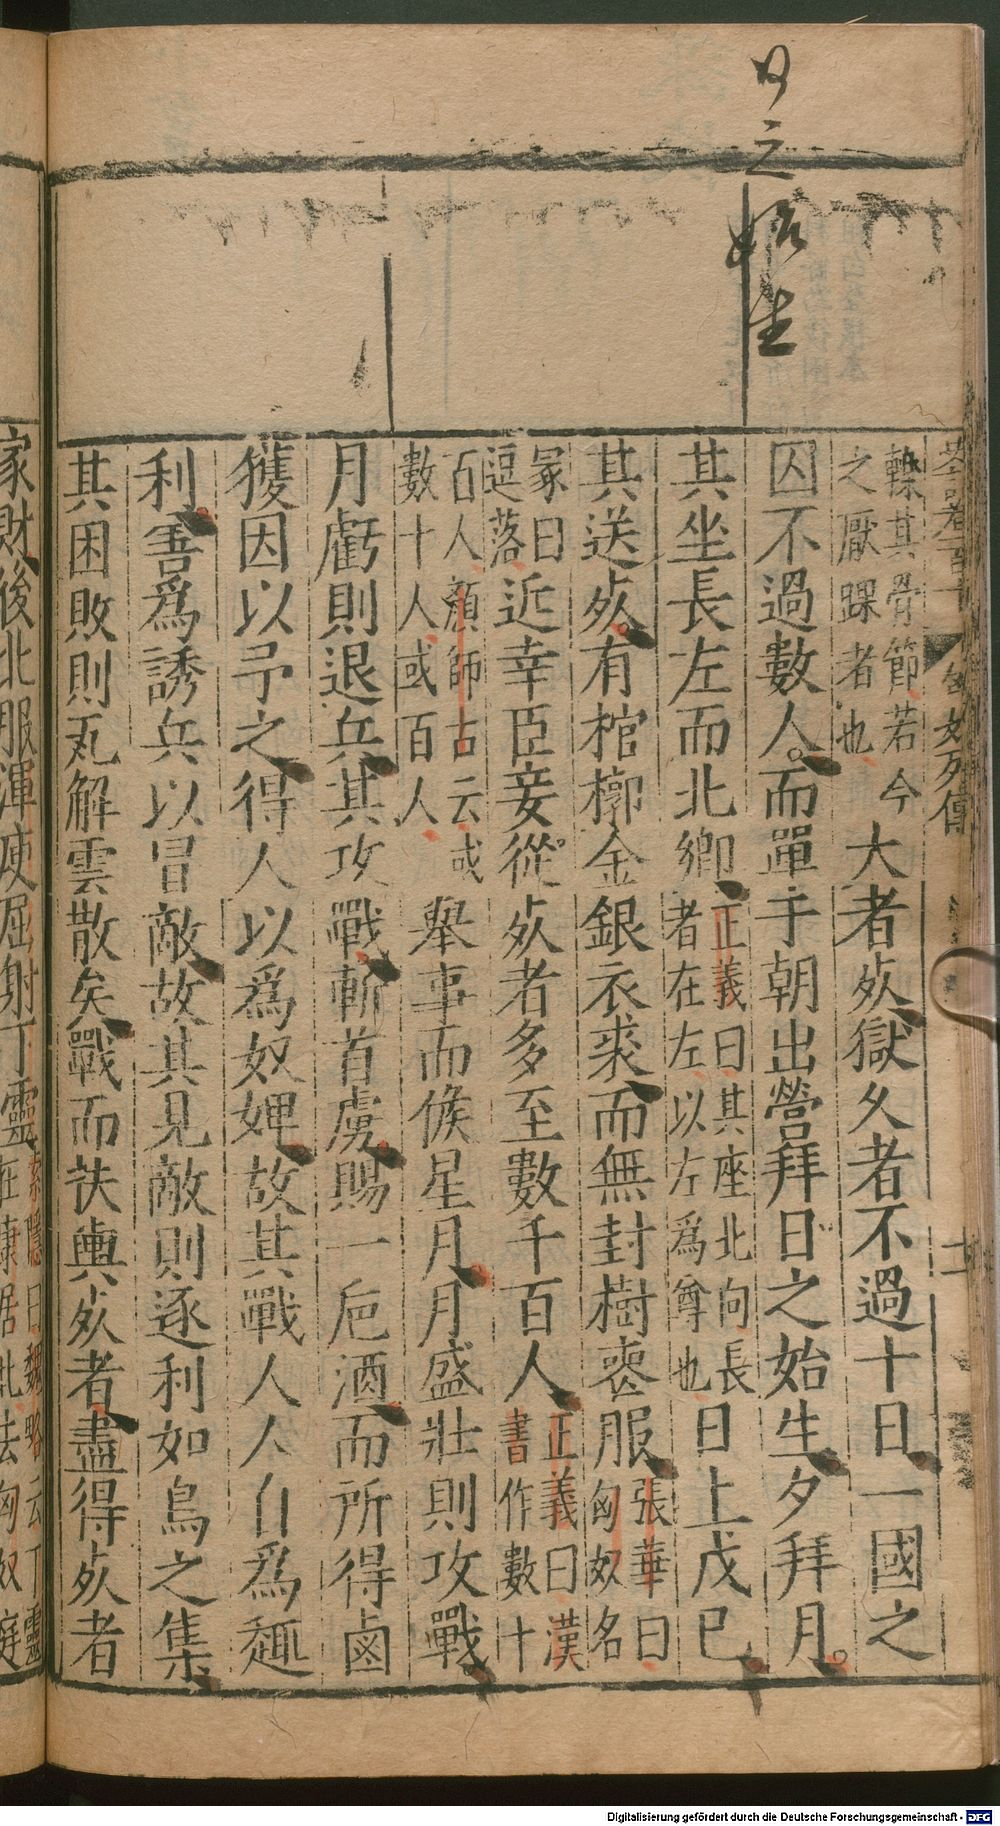 日之始生
轢其骨節若今
之厭踝者也
大者𣦸獄久者不過十日一國之
囚不過數人而單于朝出營拜日之始生夕拜月
其坐長左而北鄉
正義曰其座北向長
者在左以左爲尊也
日上戊巳
其送𣦸有棺槨金銀衣裘而無封樹喪服
張華曰
匈奴名
冢曰
逗落
近幸臣妾從𣦸者多至數千百人
正義曰漢
書作數十
百人顏師古云或
數十人或百人
舉事而候星月月盛壯則攻戰
月虧則退兵其攻戰斬首虜賜一巵酒而所得鹵
獲因以予之得人以爲奴婢故其戰人人自爲趣
利善爲誘兵以冒敵故其見敵則逐利如鳥之集
其困敗則瓦解雲散矣戰而扶輿𣦸者盡得𣦸者
家財後北服渾庾屈射丁靈
索隱曰魏略云丁靈
在康居北去匈奴庭
Digitalisierung gefördert durch die Deutsche Forschungsgemeinschaft - DFG